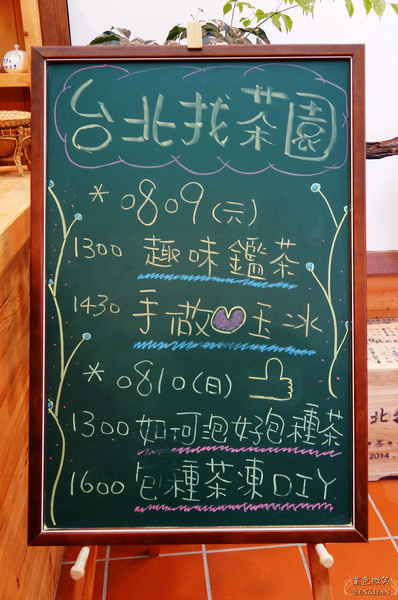 台北找茶園
* 0809(六)
1300 趣味鑑茶
1430 手做玉冰
* 0810(日)
1300 如何泡好包種茶
1600 包種茶凍DIY
2014
紫色微笑
BEN&JEAN